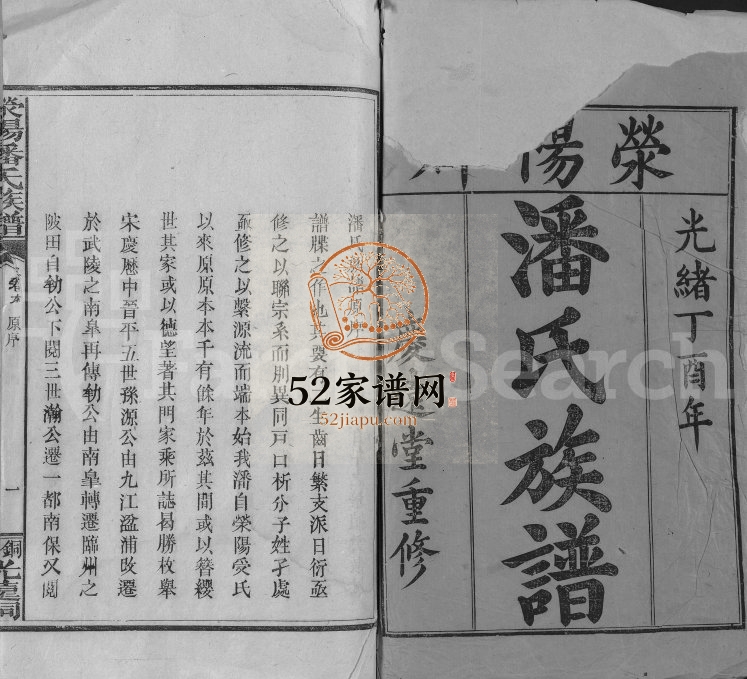 滎陽
光緒丁酉年
潘氏族譜
堂重修
潘氏
譜牒之作也其要有生齒日繁支派日衍亟
修之以聯宗系而別異同戸口析分子姓孑處
亟修之以繫源流而端本始我潘自荣陽受氏
以來原原本本千有餘年於茲其間或以簪纓
世其家或以德望著其門家乘所誌曷勝枚舉
宋慶歷中晉平五世孫源公由九江盆浦攺遷
於武陵之南臯再傳勑公由南臯轉遷臨州之
陂田自勑公下閱三世瀚公遷一都南保又閱
滎陽潘氏族譜
原序
一
52家谱网
52jiapu.com
Search